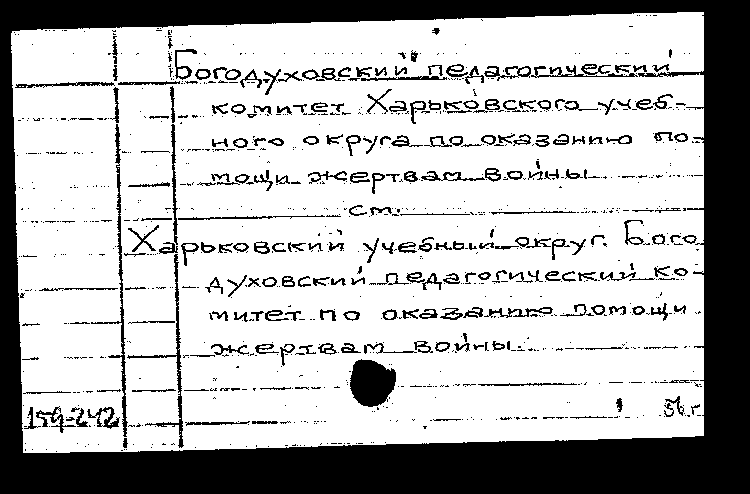 Богодуховский педагогический
комитет Харьковского учеб-
ного округа по оказанию по-
мощи жертвам войны
см.
Харьковский учебный округ. Бого
духовский педагогический ко-
митет по оказанию помощи
жертвам войны.
159-242 56 г